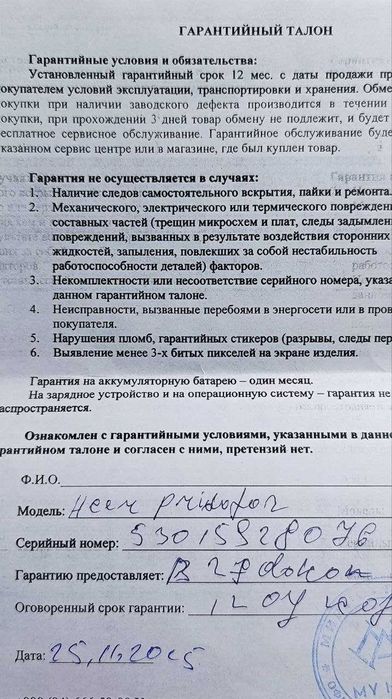 ГАРАНТИЙНЫЙ ТАЛОН
Гарантийные условия и обязательства:
Установленный гарантийный срок 12 мес. с даты продажи пр
покупателем условий эксплуатации, транспортировки и хранения. Обме
окупки при наличии заводского дефекта производится в течении
окупки, при прохождении 3 дней товар обмену не подлежит, и будет
есплатное сервисное обслуживание. Гарантийное обслуживание буде
казанном сервис центре или в магазине, где был куплен товар.
Гарантия не осуществляется в случаях:
1. Наличие следов самостоятельного вскрытия, пайки и ремонта.
2. Механического, электрического или термического повреждени
составных частей (трещин микросхем и плат, следы задымлен
повреждений, вызванных в результате воздействия сторонних
жидкостей, запыления, повлекших за собой нестабильность
работоспособности деталей) факторов.
3. Некомплектности или несоответствие серийного номера, указа
данном гарантийном талоне.
4. Неисправности, вызванные перебоями в энергосети или в пров
покупателя.
5. Нарушения пломб, гарантийных стикеров (разрывы, следы пер
6. Выявление менее 3-х битых пикселей на экране изделия.
Гарантия на аккумуляторную батарею – один месяц.
На зарядное устройство и на операционную систему – гарантия не
аспространяется.
Ознакомлен с гарантийными условиями, указанными в данно
арантийном талоне и согласен с ними, претензий нет.
Ф.И.О.
Модель: Acer
Серийный номер: 53015928076
Гарантию предоставляет:
Оговоренный срок гарантии:
Дата: 25.11.2025